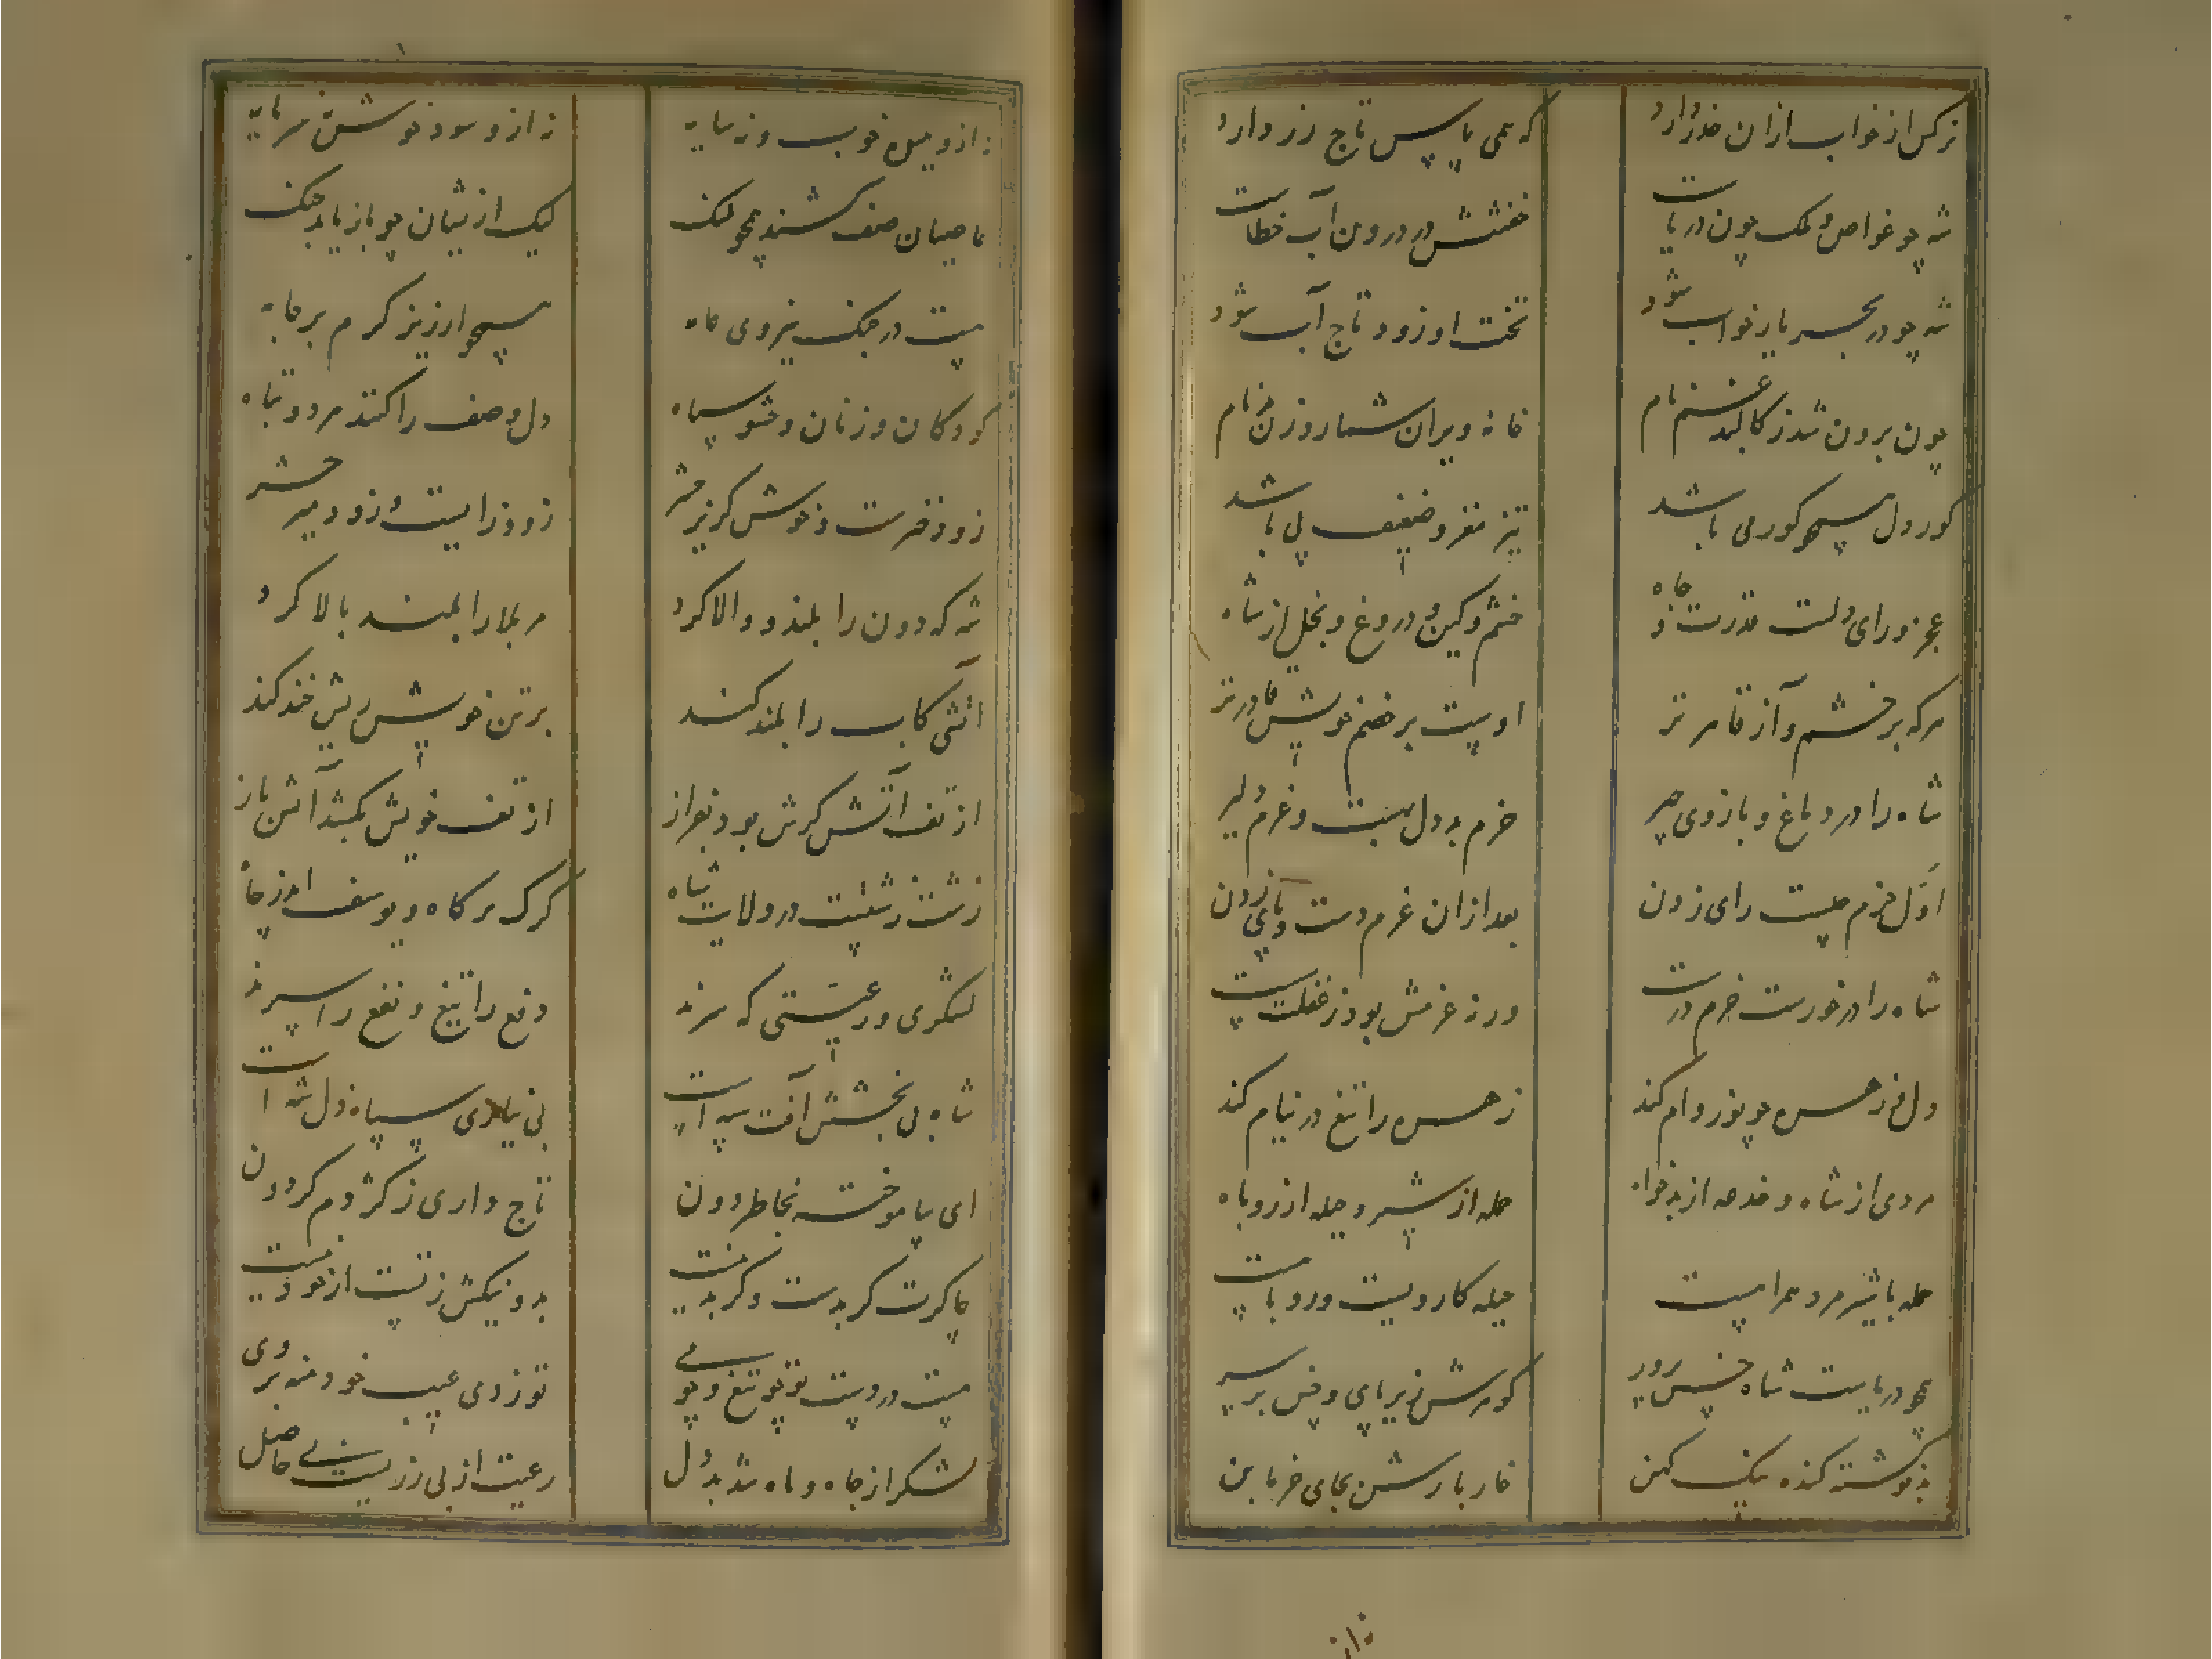 نرکس از خواب ازان حذر دارد
که همی پاس تاج زر دارد
شه چو غواص و ملک چون دریاست
خفتنش در درون آب خطاست
شه چو در بحر یار خواب شود
تخت او زود تاج آب شود
چون برون شد ز کالبد غم نام
خانه ویران شمار و روزن نام
کور دل همچو کور می باشد
تیز مغز و ضعیف پی باشد
عجز و رای دلت قدرت و جاه
خشم و کین و دروغ و بخل از شاه
هرکه بر خشم و آز قاهرتر
اوست بر خصم خویش قادرتر
شاه را در دماغ و بازوی چیر
حزم بددل بهست و عزم دلیر
اول حزم چیست رای زدن
بعد ازان عزم دست و پای زدن
شاه را در خورست حزم درست
ورنه عزمش بود ز غفلت سست
دل ز زهره چو نور وام کند
زهره را تیغ در نیام کند
مردی از شاه و خدعه از بدخواه
حمله از شیر و حیله از روباه
حمله با شیر مرد همراهست
حیله کار دلیست و روباهست
همچو دریاست شاه خس پرور
کوهرش زیر پای و خس بر سر
بد نوشته کنده نیک کهن
خار بارش بجای خرمابن
نه ازو میوه خوب و نه سایه
نه ازو سود خوش نه سرمایه
ناصبان صف کشند همچو کلنک
لیک ازیشان چو باز ناید جنک
نیست در جنک نیروی ماه
همچو ارزیز کرم بر جابه
کودکان و زنان و حشو سپاه
دل و صف را کنند هر دو تباه
زود خرست و خوش کریز حشر
زود زایست و زود میر حشر
شه که دون را بلند و والا کرد
مر بلا را بلند بالا کرد
آتشی کاب را بلند کند
بر تن خویش ریش خند کند
از تف آتش کرش بود بفراز
از تف خویش بکشد آتش باز
زشت زشتست در ولایت شاه
کرک بر کاه و یوسف اندر چاه
لشکری و رعیتی که سزند
دفع را تیغ و نفع را سپرند
شاه بی بخشش آفت سپه است
بی نیازی سپاه ذل شه است
ای بیاموخته بخاطر دون
تاج داری ز کژدم کردون
چاکرت کر بدست و کر نیکست
بد و نیکش ز تست از خود نیست
نیست در دست تو چو تیغ و چو نی
تو ز دمی عیب خود منه بر وی
لشکر از جاه و ماه شد بد دل
رعیت از بی زریست بی حاصل